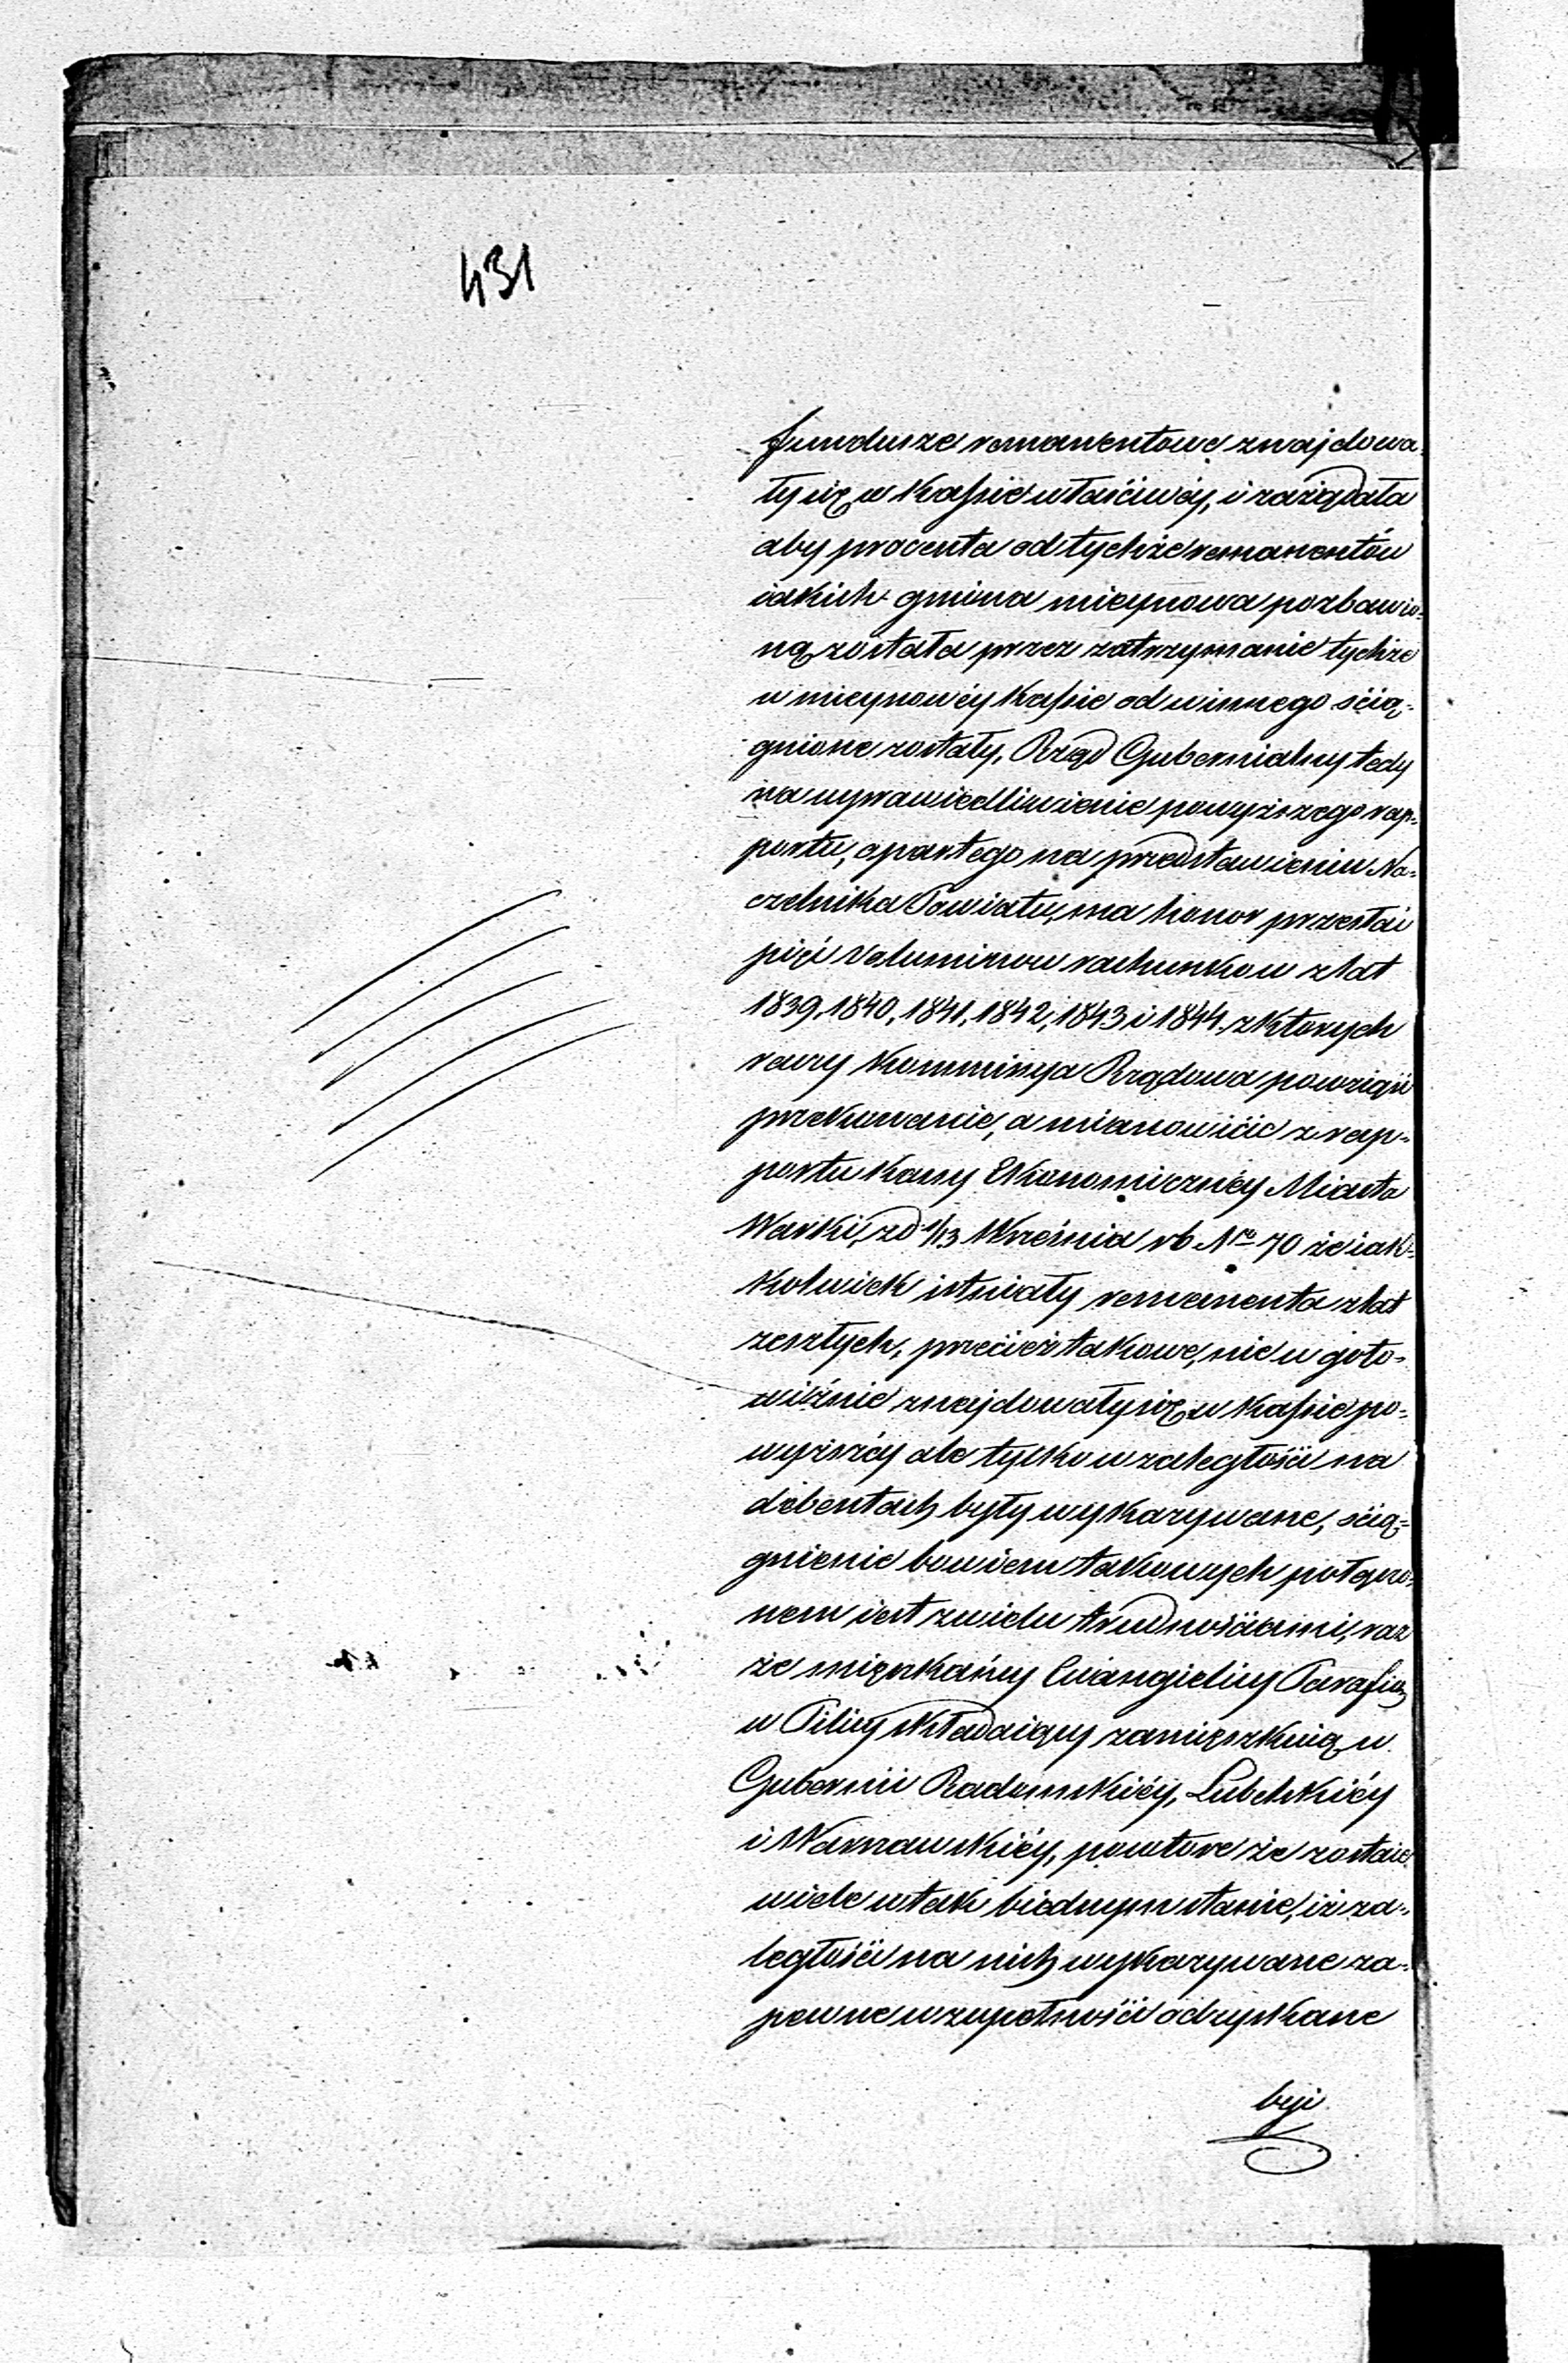 431
fundusze remanentowe znajdowa-
ły się w Kassie właściwéy, i zażądała
aby procenta od tychże remanentów
iakich gmina mieyscowa pozbawio-
ną została przez zatrzymanie tychże
w mieyscowéy Kassie od winnego ścią-
gnione zostały, Rząd Gubernialny tedy
na usprawiedliwienie powyższego rap-
portu, opartego na przedstawieniu Na-
czelnika Powiatu, ma honor przesłać
pięć voluminow rachunkow z lat
1839, 1840, 1841, 1842, 1843 i 1844. z ktorych
raczy Kommissya Rządowa powziąść
przekonanie, a mianowicie z rap-
portu Kassy Ekonomicznéy Miasta
Warki, z d 1/13 Września rb Nro 70 że iak-
kolwiek istniały remanenta z lat
zeszłych, przecież takowe, nie w goto-
wiźnie znajdowały się w Kassie po-
wyższéy ale tylko w zaległości na
debentach były wykazywane, ścią-
gnienie bowiem takowych połączo-
nem iest z wielu trudnościami, raz
że mięszkańcy Ewangieliccy Parafią
w Pilicy składaiący zamięszkuią w
Gubernii Radomskiéy, Lubelskiéy
i Warszawskiéy, powtore że zostaie
wiele w tak biednym stanie, iż za-
ległości na nich wykazywane za-
pewne w zupełności odzyskane
być